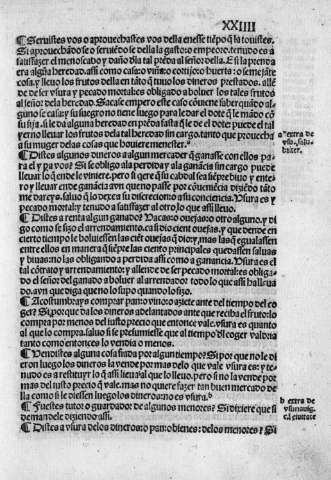 XXIIII
¶ Seruistes vos o aprouechastes vos della en esse tiẽpo q̃ la touistes.
Si aprouechãdose o seruiẽdose della la gasto o empeoro, tenudo es a
satisfazer el menoscabo y daño dla tal pẽda al señor della. E si la prenda
era algũa heredad, assi como casa o viña o cortijo o huerta: o semejãte
cosa, y lleuo los frutos della en tãto q̃ tuuo los dineros prestados, allẽ
de de ser vsura y pecado mortal es obligado a boluer los tales frutos
al señor de la heredad. Saca se empero este caso cõuiene saber quãdo al
guno se casa: y su suegro no tiene luego para le dar el dote q̃ le mãdo cõ
su fija, si le da alguna heredad en pẽda fasta q̃ le de el dote puede el tal
yerno lleuar los frutos dela tal heredad sin cargo, tanto que prouecha
a su muger delas cosas que houiere menester.ᵃ
a extra de
vsu. salu-
briter.
¶ Distes algunos dineros a algun mercader q̃ ganasse con ellos pa
ra el y pa vos? Si se obligo ala perdida y ala ganãcia sin cargo puede
lleuar lo q̃ ende le viniere, pero si q̃ere q̃ su cabdal sea siẽpre biuo y ente-
ro y lleuar ende ganãcia avn que no passe por cõuenẽcia diziẽdo tãto
me dareys, saluo q̃ lo dexa a su discrecion o a su conciencia. Vsura es y
pecado mortal y tenudo a satisfazer al otro lo que assi lleuo.
¶ Distes a renta algun ganado? Vacas o ouejas o otro alguno, y di
go como se fizo el arrendamiento. ca si dio cient ouejas, y que dende en
cierto tiempo le boluiessen las ciẽt ouejas q̃ dio y mas las q̃ egualassen
entre ellos en manera q̃ siẽpre las ciento principales quedassen saluas
y biuas: no las obligando a perdida assi como a ganancia. Vsura es el
tal cõtrato y arrendamiento: y allende de ser pecado mortal es obliga
do el señor del ganado a boluer al arrendador todo lo que assi ha lleua
do. avn que diga que no lo supo quando lo fizo.
¶ Acostumbrays comprar pan o vino o azeite ante del tiempo del co
ger? Si por que da los dineros adelantados ante que reciba el fruto: lo
compra por menos del justo precio que entonce vale. vsura es quanto
al que lo compra. saluo si se presumiesse que al tiempo dl coger valdria
tanto como entonces lo vendia o menos.
¶ Vendistes alguna cosa fiada por algun tiempo? Si por que no le di
eron luego los dineros la vende por mas delo que vale vsura es: y te-
nudo es a restituyr lo q̃ assi lleua de lo que lleuo. pero si no la vende por
mas del justo precio q̃ vale. mas no quiere fazer tan buen mercado de
lla como si le diessen luego los dineros: no es vsura.ᵇ
b extra de
vsuris. in
ca. ciuitate
¶ Fuestes tutor o guardador de algunos menores? Si dixere que si
demandele diziendo assi.
¶ Distes a vsura delos dineros o pan o bienes: delos menores? Si